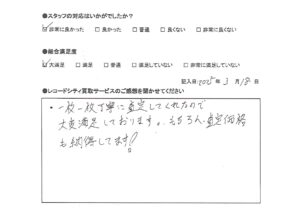 ●スタッフの対応はいかがでしたか?
☑非常に良かった □良かった □普通 □良くない □非常に良くない
●総合満足度
☑大満足 □満足 □普通 □満足していない □非常に満足していない
記入日:2025年 3月18日
●レコードシティ買取サービスのご感想を聞かせてください
・一枚一枚丁寧に査定してくれたので
大変満足しております。もちろん、査定価格
も納得してます!!